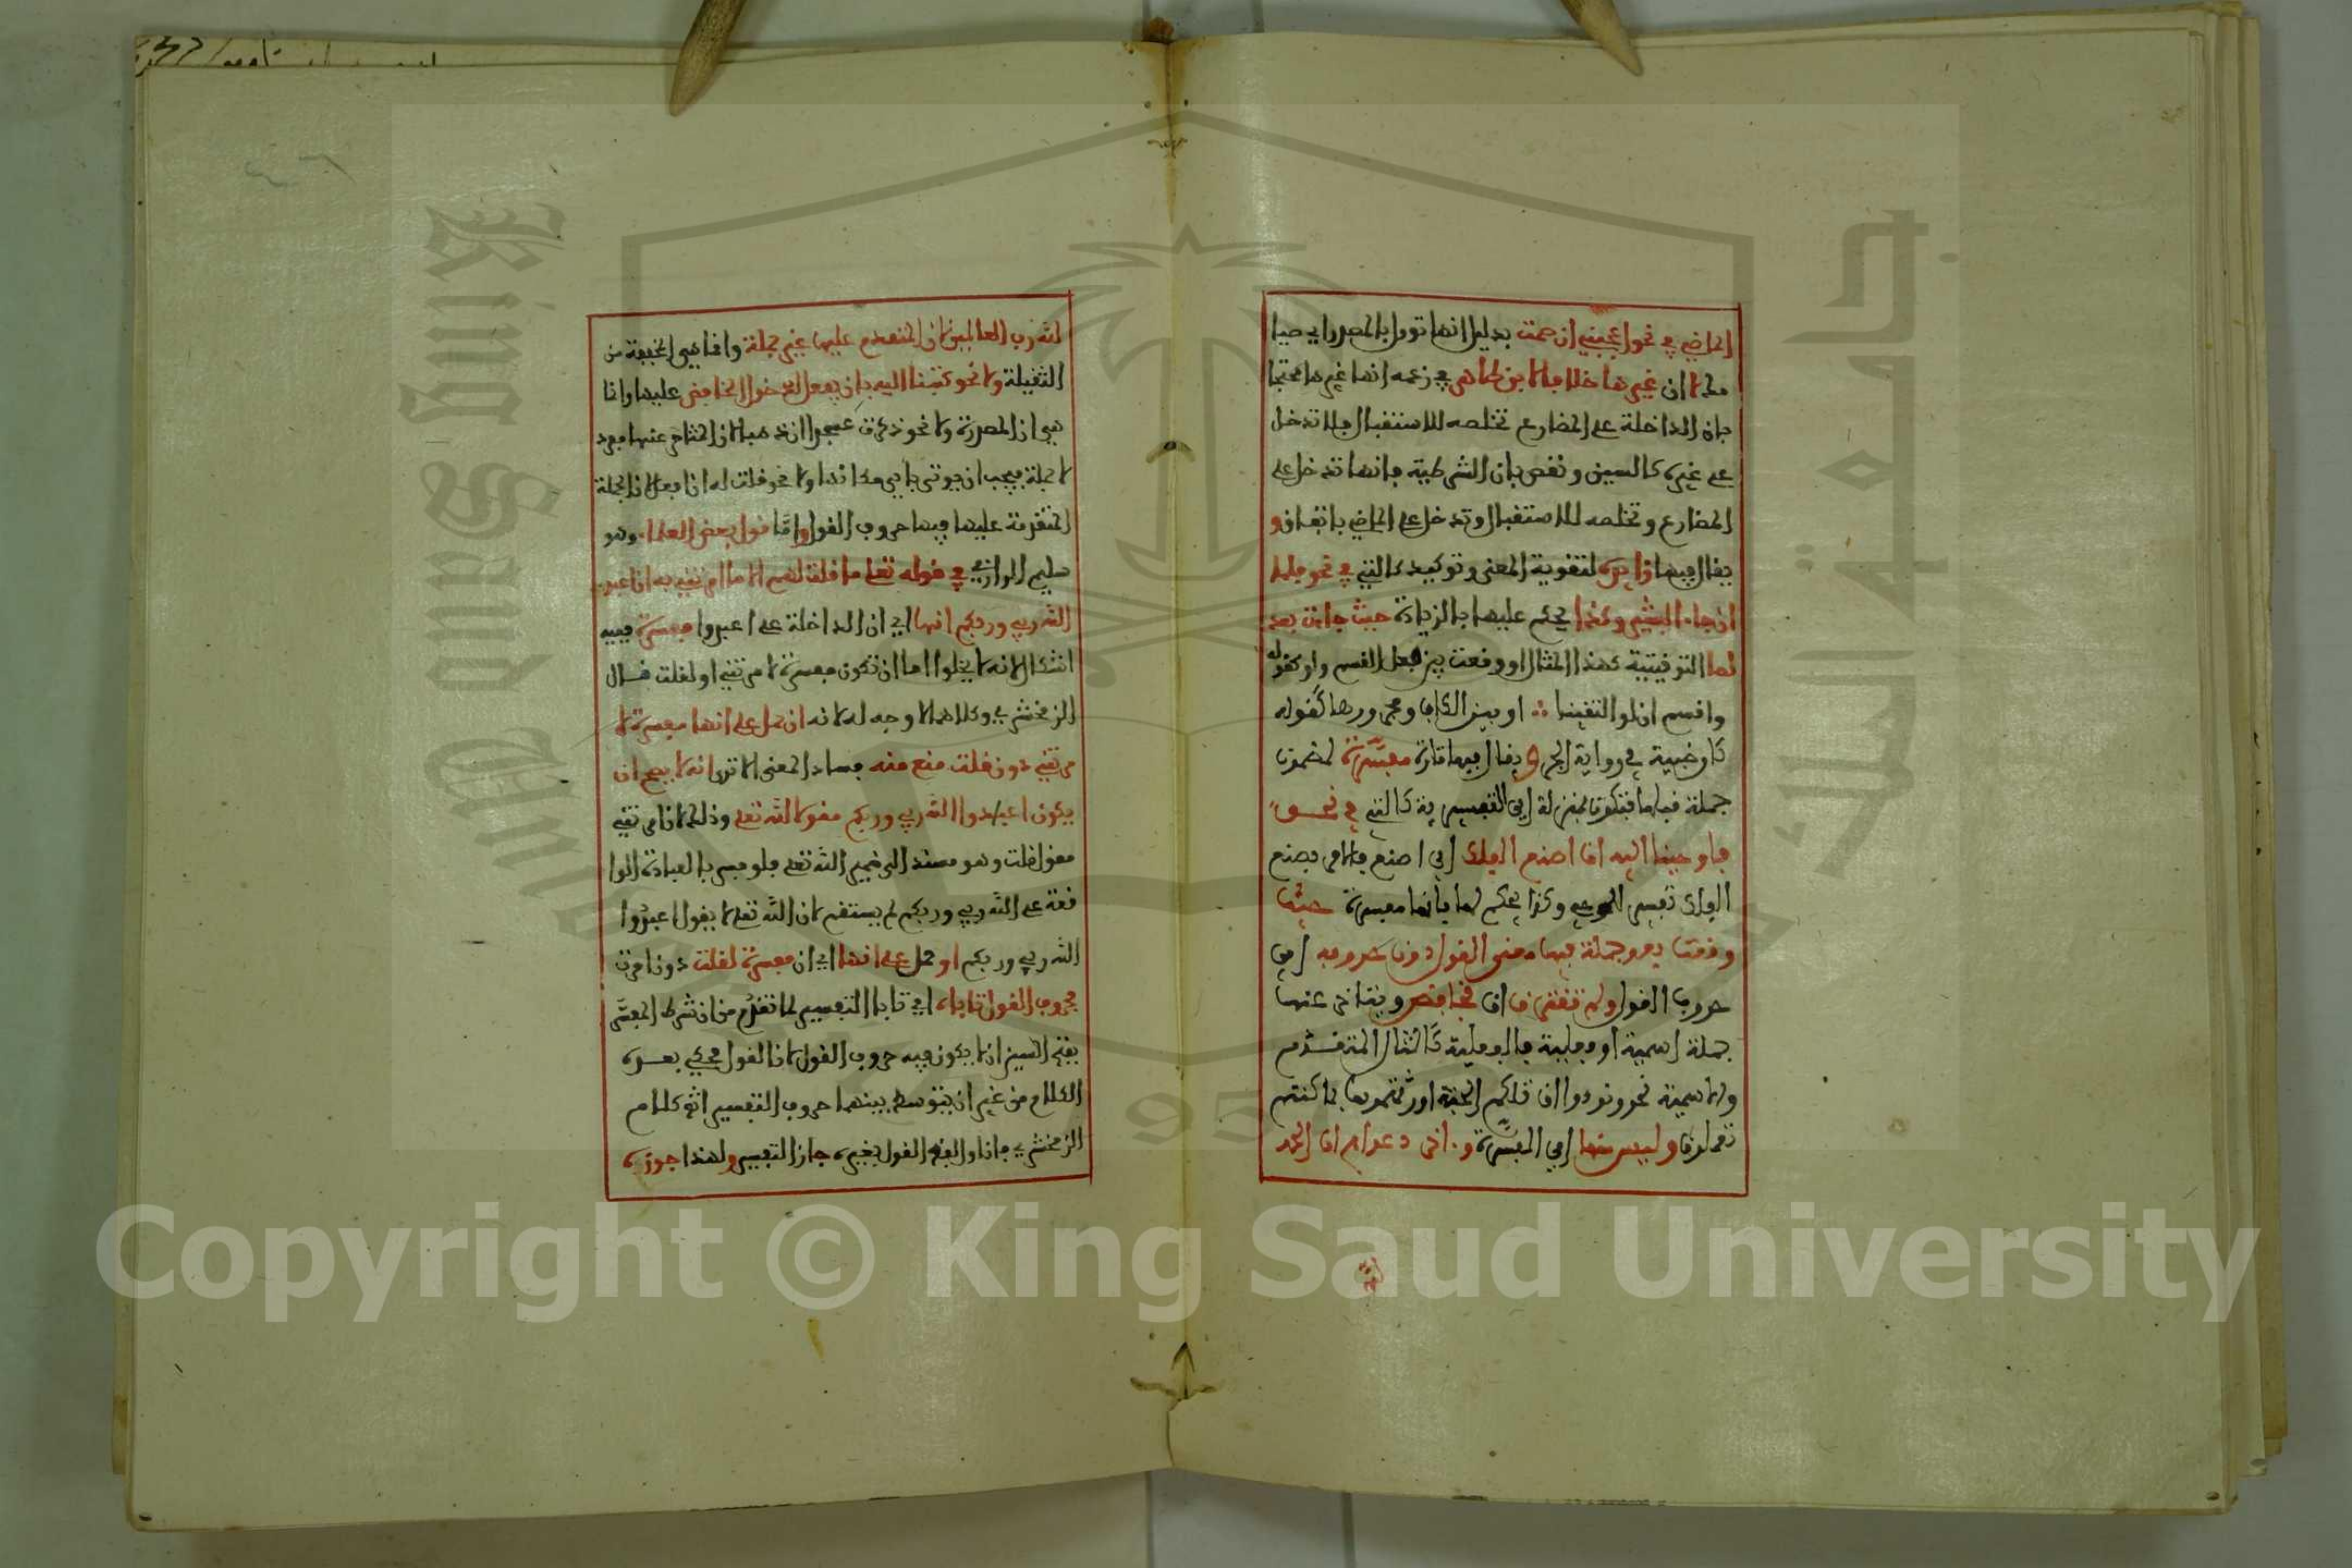 الماضي في نحو اعجبني ان صمت بدليل انها توول بالمصدر اي صيا
مك لا ان غيرها خلافا لابن طاهر في زعمه انها غيرها محتجا
بان الداخلة على المضارع تخلصه للاستقبال فلا تدخل
على غيره كالسين ونقض بان الشرطية فانها تدخل على
المضارع وتخلصه للاستقبال وتدخل على الماضي باتفاق و
يقال فيها زايدة لتقوية المعنى وتوكيده كالتي في نحو فلما
ان جاء البشير وكذا يحكم عليها بالزيادة حيث جاءت بعد
لما التوقيتية كهذا المثال او وقعت بين فعل القسم ولو كقوله
واقسم ان لو التقينا ∴ او بين الكاف ومجرورها كقوله
كان ضبية في رواية الجر و يقال فيها تارة مفسرة لمضمون
جملة قبلها فتكون بمنزلة اي التفسيرية كالتي في نحو
فاوحينا اليه ان اصنع الفلك اي اصنع فالامر بصنع
الفلك تفسير للوحي وكذا يحكم لها بانها مفسرة حيث
وقعت بعد جملة فيها معنى القول دون حروفه اي
حروف القول ولم تقترن ان بخافض ويتاخر عنها
جملة اسمية او فعلية فالفعلية كالمثال المتقدم
والاسمية نحو ونودوا ان تلكم الجنة اورثتموها بما كنتم
تعملون وليس منها اي المفسرة واخر دعواهم ان الحمد
لله رب العالمين لان المتقدم عليها غير جملة وانما هي المخففة من
الثقيلة ولا نحو كتبت اليه بان يفعل لدخول الخافض عليها وانما
هي ان المصدرية ولا نحو ذكرت عسجدا ان ذهبا لان المتاخر عنها مفرد
لا جملة فيجب ان يوتى باي مكانها ولا نحو قلت له ان افعل لان الجملة
المتقدمة عليها فيها حروف القول واما قول بعض العلماء وهو
سليم الرازي في قوله تعلى ما قلت لهم الا ما امرتني به ان اعبدوا
الله ربي وربكم انها اي ان الداخلة على اعبدوا مفسرة ففيه
اشكال لانه لا يخلوا اما ان تكون مفسرة لامرتني او لقلت قال
الزمخشري وكلاهما لا وجه له لانه ان حمل على انها مفسرة لا
مرتني دون قلت منع منه فساد المعنى الا ترى انه لا يصح ان
يكون اعبدوا الله ربي وربكم مقولا لله تعلى وذلك لان امرتني
مقول قلت وهو مسند الى ضمير الله تعلى فلو فسر بالعبادة الوا
قعة على الله ربي وربكم لم يستقم لان الله تعلى لا يقول اعبدوا
الله ربي وربكم او حمل على انها اي ان مفسرة لقلت دون امرت
فحروف القول تاباه اي تابا التفسير لما تقدم من ان شرط المفسر
بفتح السين ان لا يكون فيه حروف القول لان القول يحكى بعده
الكلام من غير ان يتوسط بينهما حروف التفسير انتهى كلام
الزمخشري فان اول القول بغيره جاز التفسير ولهذا جوزه
Copyright © King Saud University